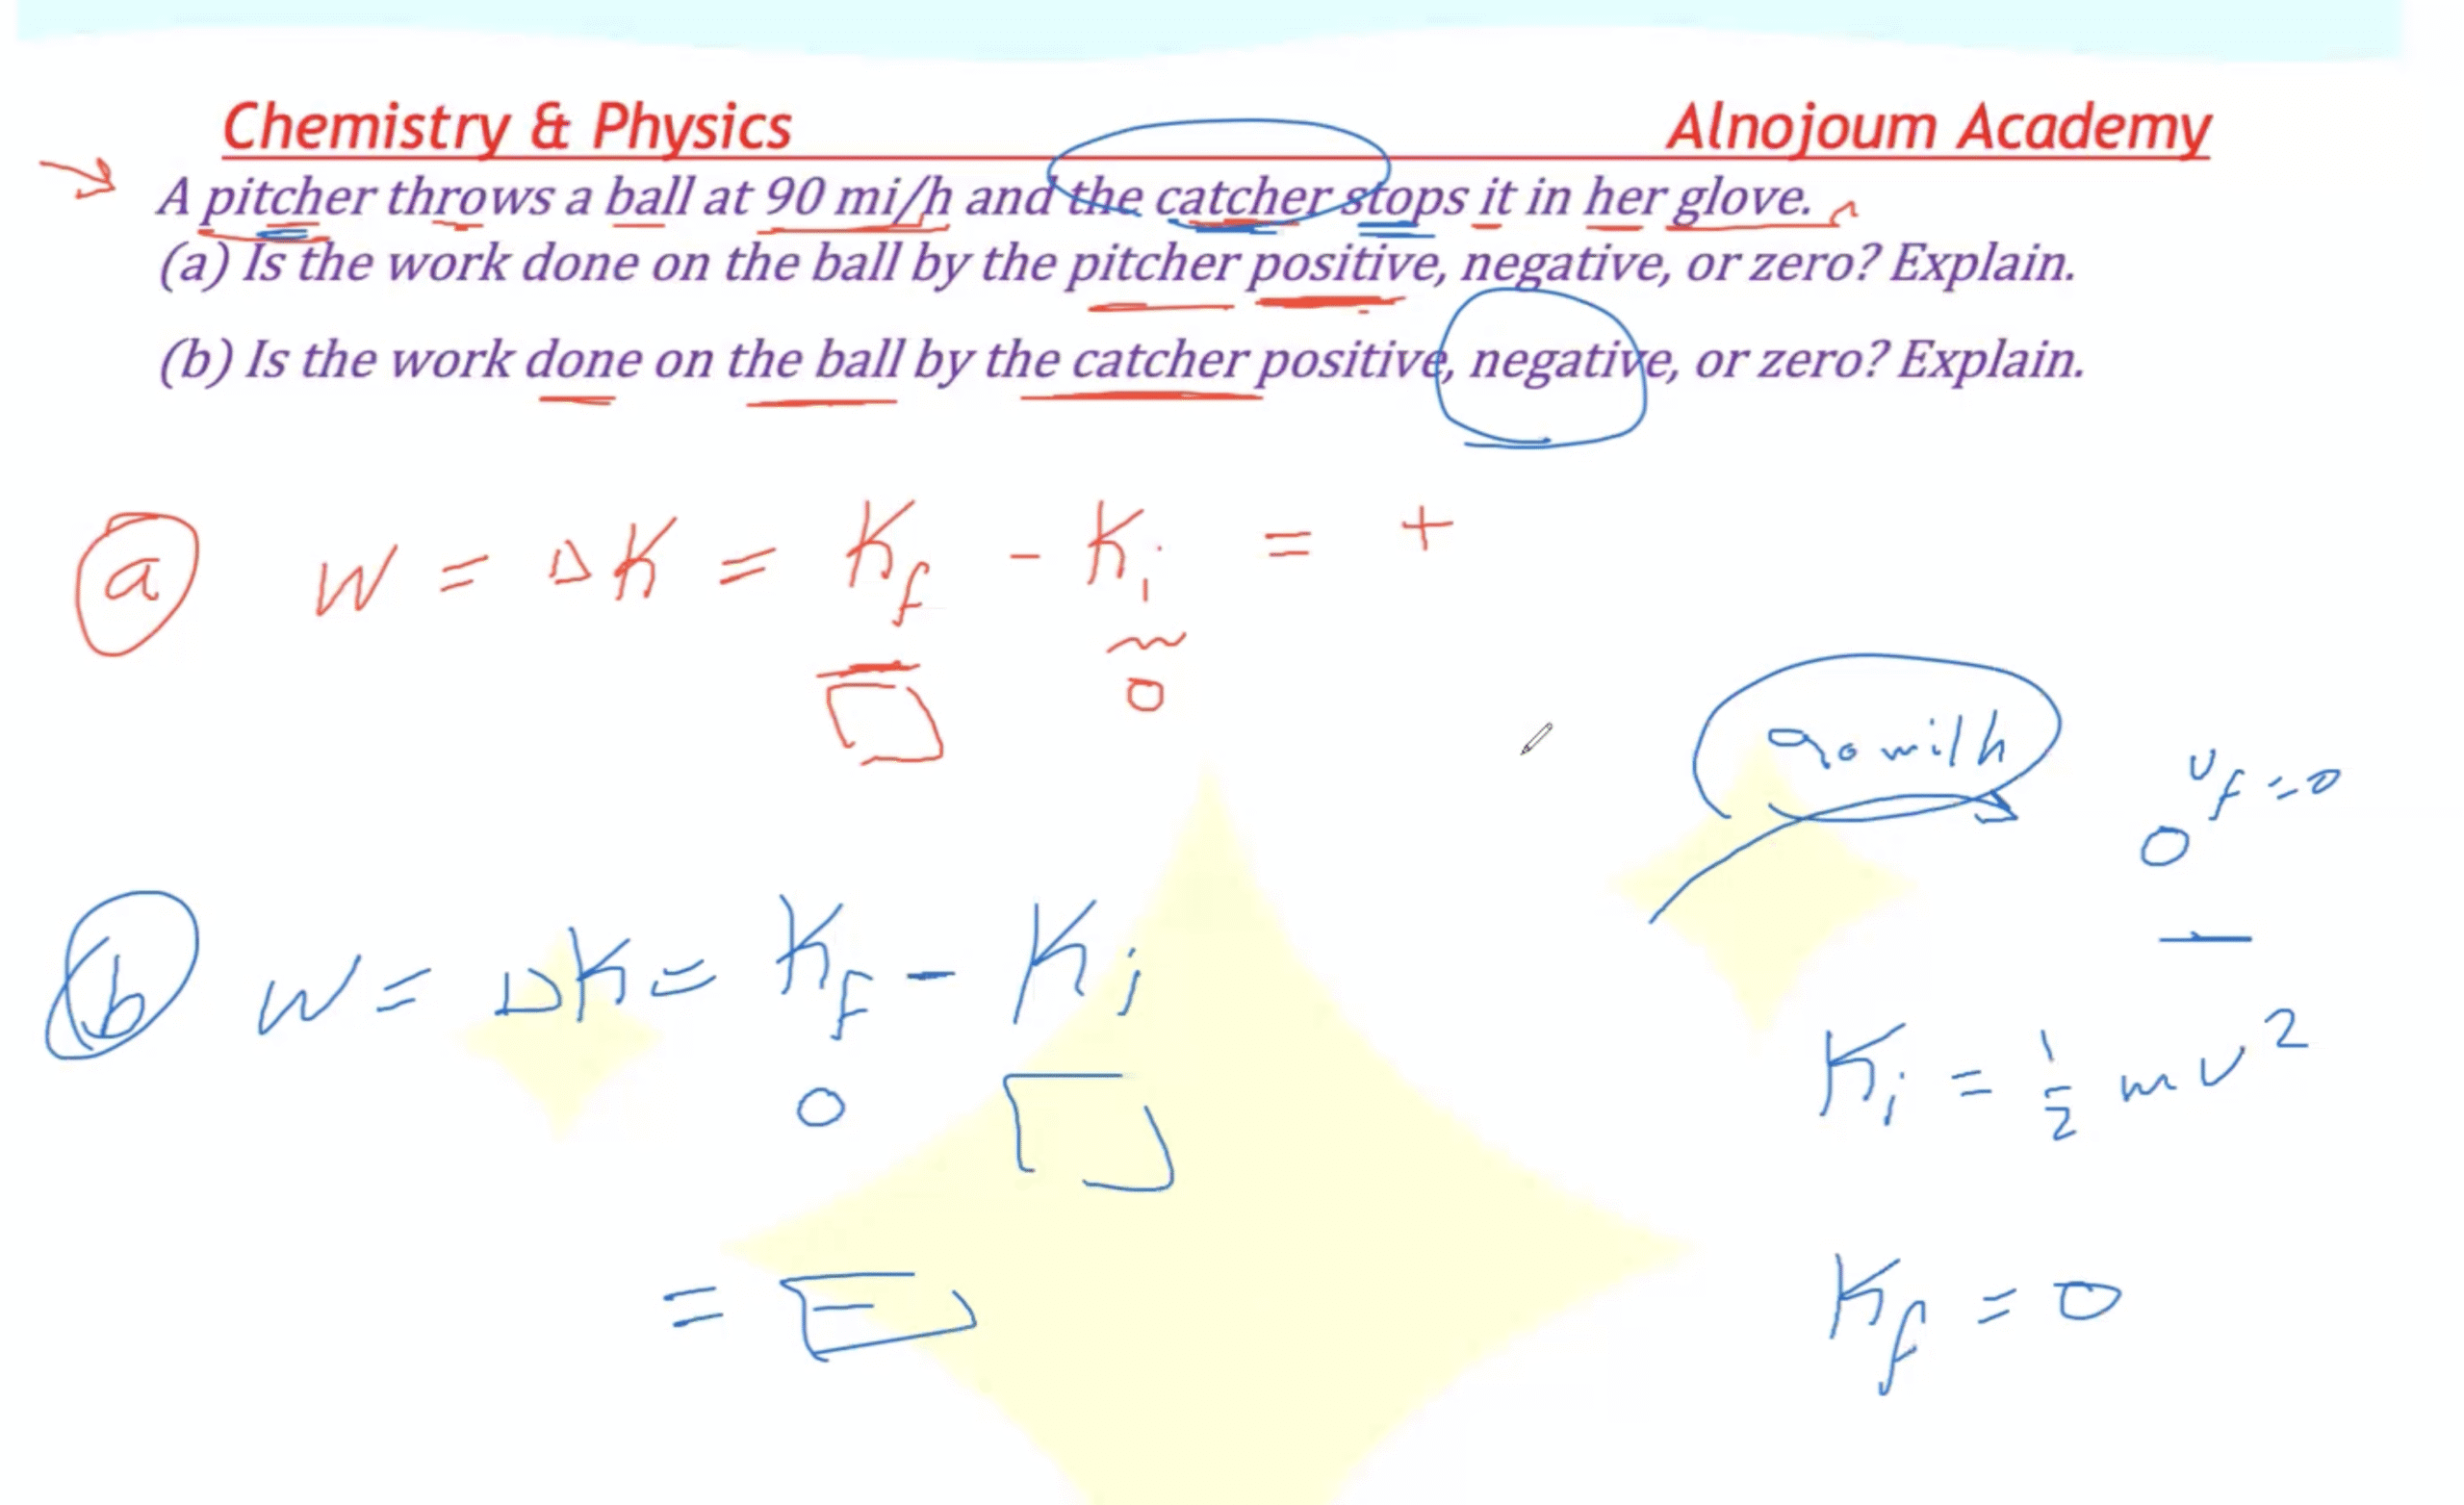 Chemistry & Physics Alnojoum Academy
A pitcher throws a ball at 90 mi/h and the catcher stops it in her glove.
(a) Is the work done on the ball by the pitcher positive, negative, or zero? Explain.
(b) Is the work done on the ball by the catcher positive, negative, or zero? Explain.
a W = ΔK = Kf - Ki = +
0
90 mi/h
vf = 0
0
b W = ΔK = Kf - Ki
0
Ki = 1/2 mv²
= -
Kf = 0